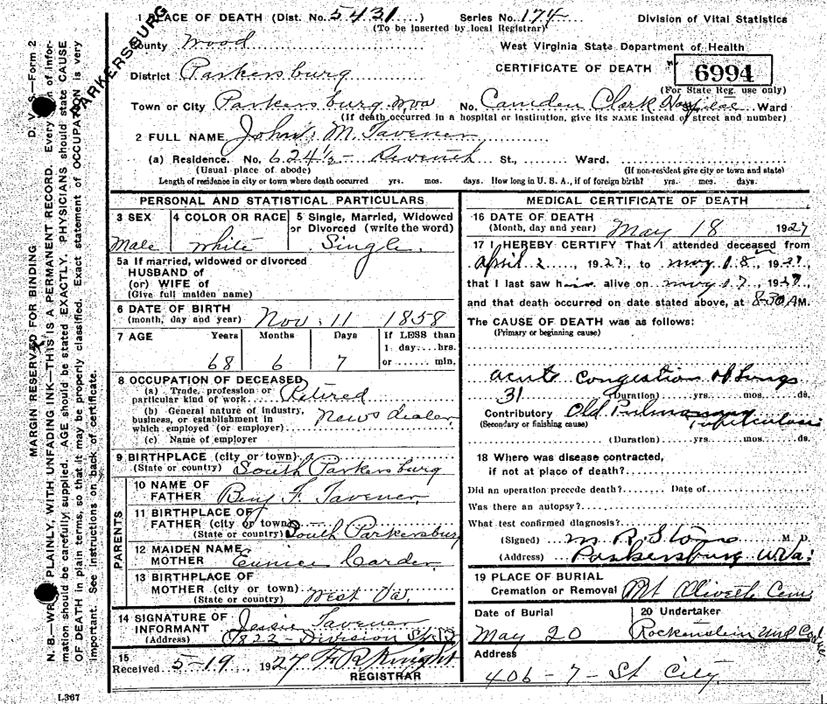 PARKERSBURG
1 PLACE OF DEATH (Dist. No. 5431) Series No. 174 Division of Vital Statistics
(To be inserted by local Registrar)
County Wood West Virginia State Department of Health
District Parkersburg CERTIFICATE OF DEATH 6994
(For State Reg. use only)
Town or City Parkersburg, W Va No. Camden Clark Hospital Ward
(If death occurred in a hospital or institution, give its NAME instead of street and number)
2 FULL NAME M. Tavener
(a) Residence. No. 624½ - Seventh St., Ward.
(Usual place of abode) (If non-resident give city or town and state)
Length of residence in city or town where death occurred yrs. mos. days. How long in U. S. A., if of foreign birth? yrs. mos. days.
PERSONAL AND STATISTICAL PARTICULARS
3 SEX 4 COLOR OR RACE 5 Single, Married, Widowed
or Divorced (write the word)
Male White Single.
5a If married, widowed or divorced
HUSBAND of
(or) WIFE of
(Give full maiden name)
6 DATE OF BIRTH
(month, day and year) Nov. 11 1858
7 AGE Years Months Days If LESS than
1 day....hrs.
68 6 7 or ...... min.
8 OCCUPATION OF DECEASED
(a) Trade, profession or
particular kind of work Retired
(b) General nature of industry,
business, or establishment in
which employed (or employer) News dealer
(c) Name of employer
9 BIRTHPLACE (city or town)
(State or country) South Parkersburg
PARENTS
10 NAME OF
FATHER Benj F. Tavener
11 BIRTHPLACE OF
FATHER (city or town)
(State or country) South Parkersburg
12 MAIDEN NAME
MOTHER Eunice Carder
13 BIRTHPLACE OF
MOTHER (city or town)
(State or country) West Va.
14 SIGNATURE OF
INFORMANT Jessie Tavener
(Address) 1822 - Division St
15
Received 5-19 1927 F R Knight
REGISTRAR
MEDICAL CERTIFICATE OF DEATH
16 DATE OF DEATH
(Month, day and year) May 18 1927
17 I HEREBY CERTIFY That I attended deceased from
April 2, 1927, to May 18, 1927,
that I last saw him alive on May 17, 1927
and that death occurred on date stated above, at 8-30 A M.
The CAUSE OF DEATH was as follows:
(Primary or beginning cause)
acute congestion of lungs
31 (Duration) yrs. mos. ds.
Contributory Old Pulmonary
(Secondary or finishing cause) Tuberculosis
(Duration) yrs. mos. ds.
18 Where was disease contracted,
if not at place of death?
Did an operation precede death? Date of
Was there an autopsy?
What test confirmed diagnosis?
(Signed) M. R. Stone M. D.
(Address) Parkersburg W Va.
19 PLACE OF BURIAL
Cremation or Removal Mt Olivet Cem
Date of Burial 20 Undertaker
May 20 Rockenstein Und
Address
406 - 7 - St City
MARGIN RESERVED FOR BINDING D. V. S.—Form 2
N. B.—WRITE PLAINLY, WITH UNFADING INK—THIS IS A PERMANENT RECORD. Every of infor-
mation should be carefully supplied. AGE should be stated EXACTLY. PHYSICIANS should state CAUSE
OF DEATH in plain terms, so that it may be properly classified. Exact statement of OCCUPATION is very
important. See instructions on back of certificate.
L367